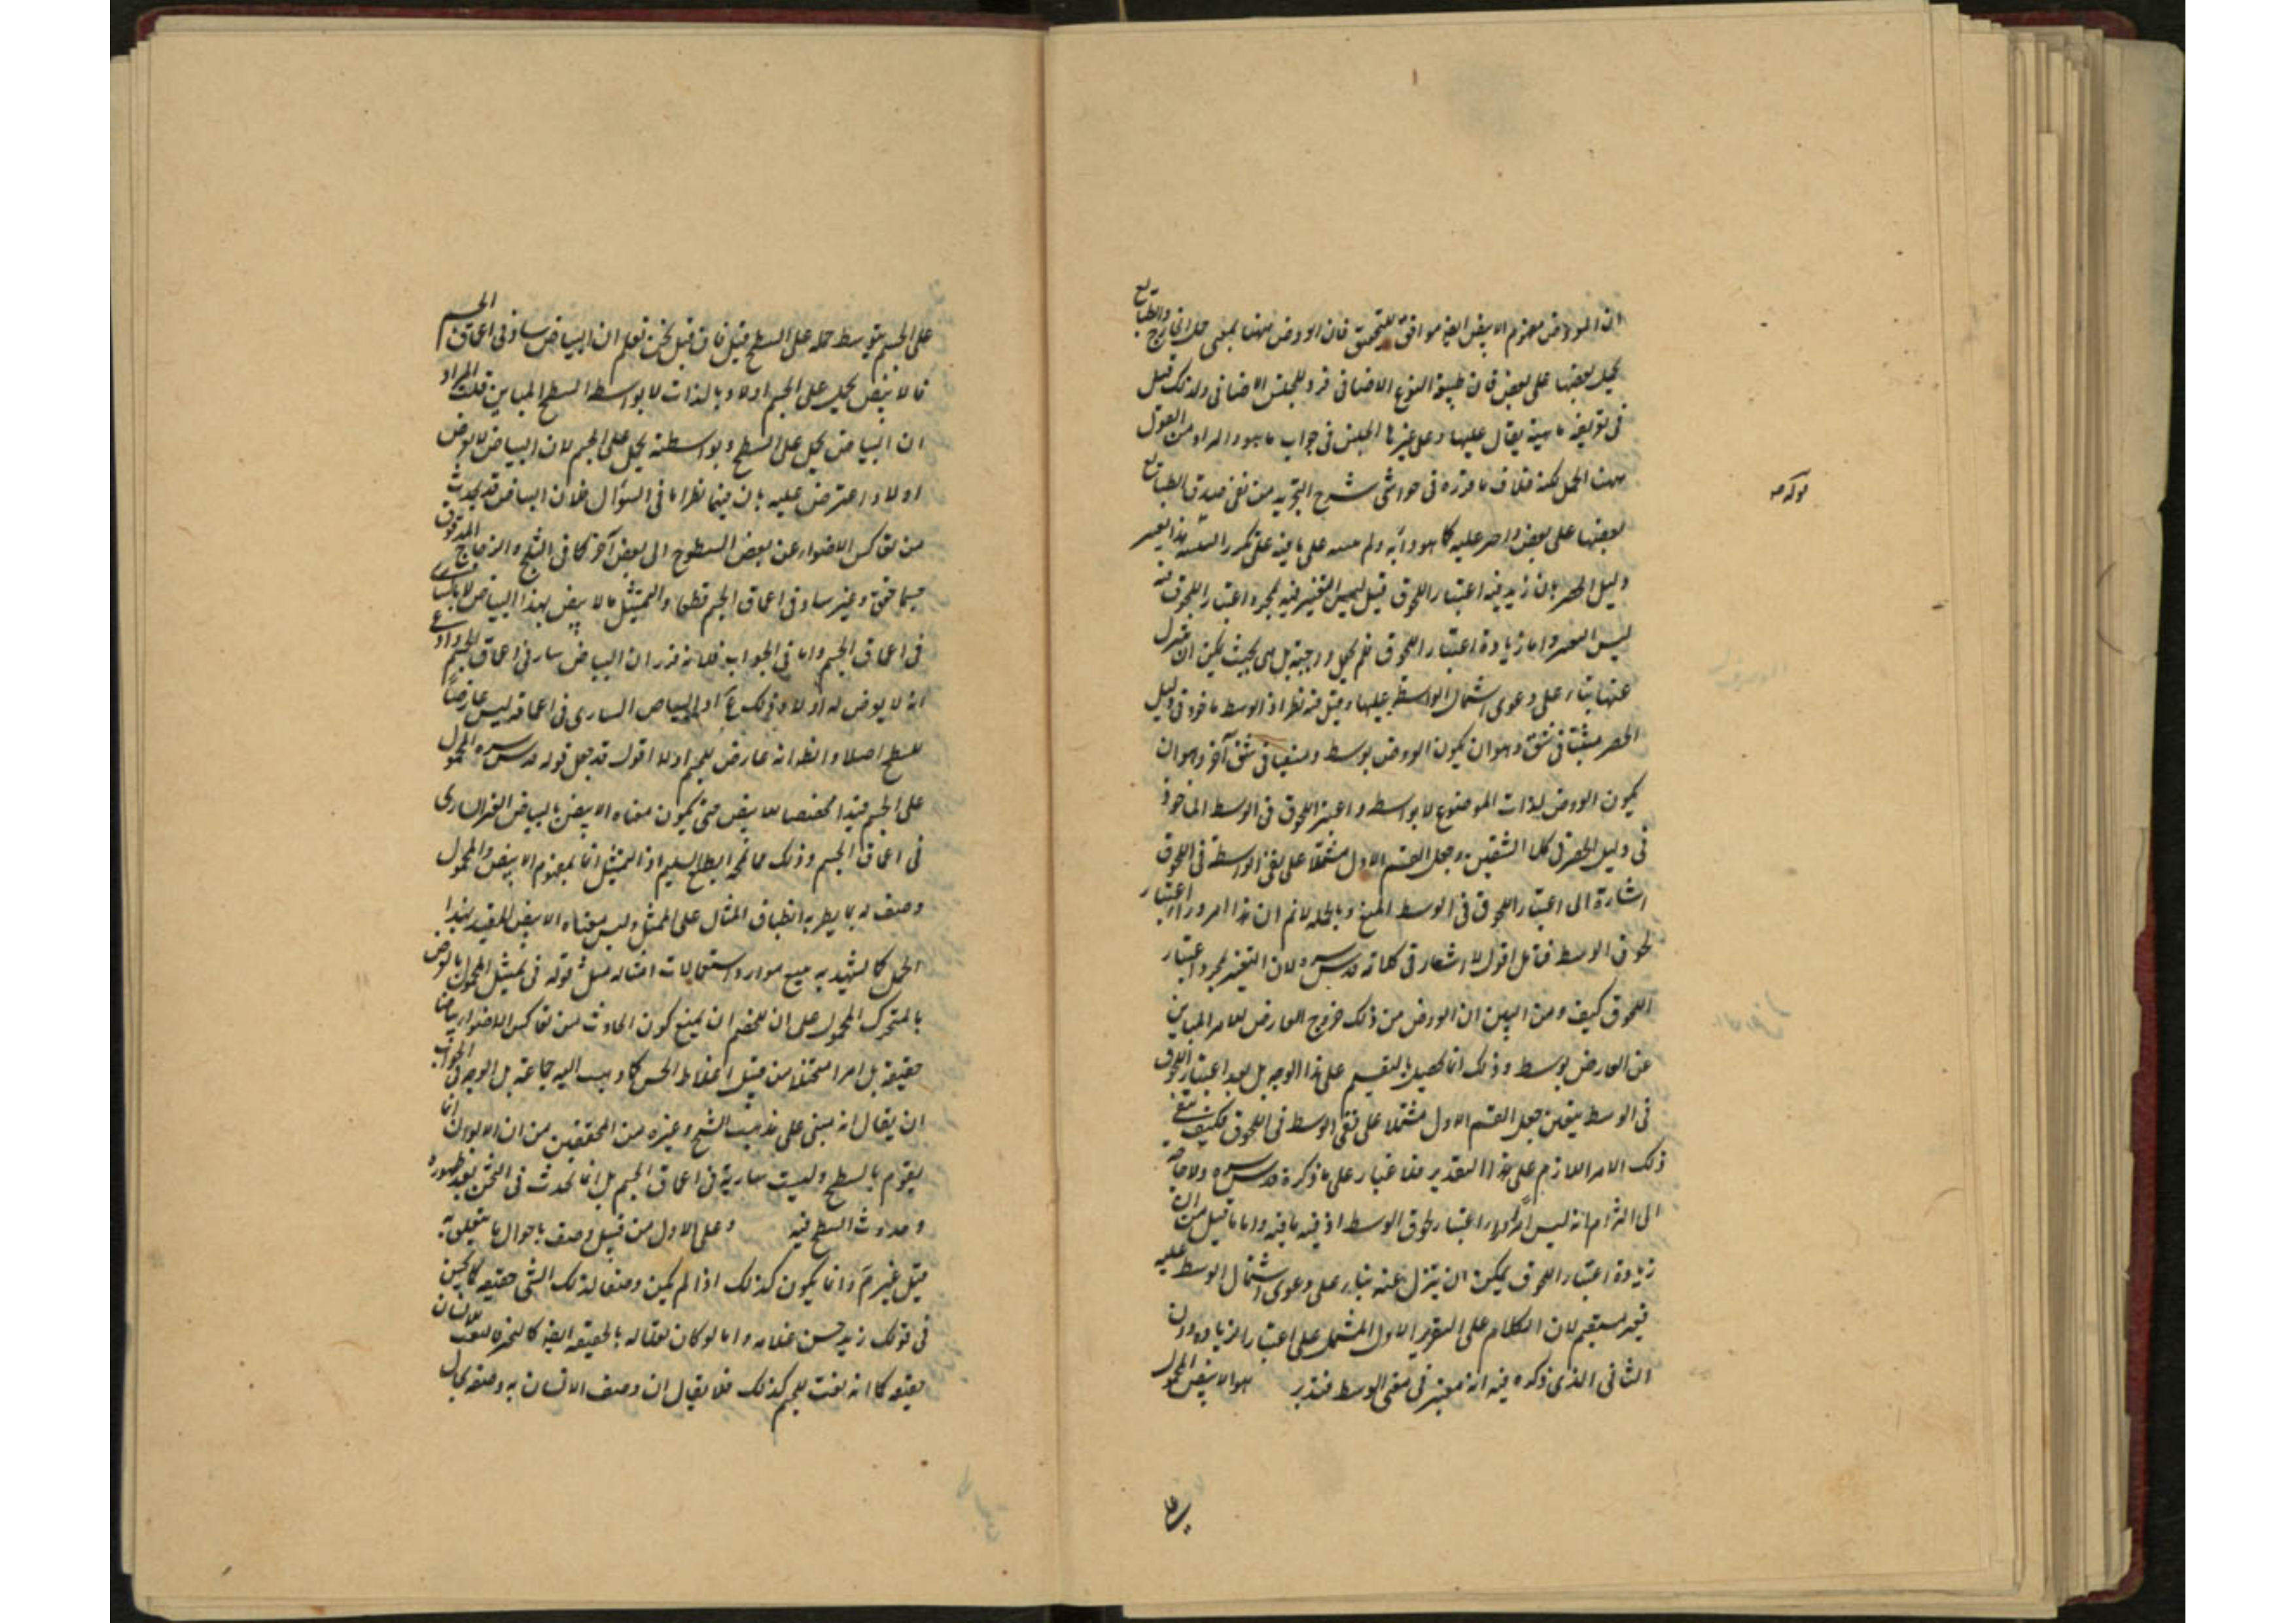 ان المعروض مفهوم الابيض ايضا موافق للتحقيق فان العروض ههنا بمعنى حمل الخارج والطبايع
يحمل بعضها على بعض فان طبيعة النوع الاضافى فرد للجنس الاضافى ولذلك قيل
فى تعريفه ماهية يقال عليها وعلى غيرها الجنس فى جواب ما هو والمراد من القول
ههنا الحمل لكنه خلاف ما قرره فى حواشى شرح التجريد من نفى صدق الطبايع
بعضها على بعض واصر عليه كما هو دأبه ولم على ما فيه على تكرر هذا
دليل الحصر بان زيد فيه اعتبار اللحوق قيل ليس التغيير فيه بمجرد اعتبار اللحوق فيه
ليس الا واما زيادة اعتبار اللحوق فلم وجبة بل هى بحيث يمكن ان ينزل
عنها بناء على دعوى اشتمال الواسطة عليها وقيل فيه نظر اذ الوسط ماخوذ فى دليل
الحصر مثبتا فى شق وهو ان يكون العروض بوسط ومنفيا فى شق آخر وهو ان
يكون العروض لذات الموضوع لا بواسطة واعتبر اللحوق فى الوسط الماخوذ
فى دليل الحصر فى كلا الشقين وجعل القسم الاول مشتملا على نفى الواسطة فى اللحوق
اشارة الى اعتبار اللحوق فى الوسط المنفى وبالجملة لا نم ان هذا امر وراء اعتبار
لحوق الوسط فتامل اقول لا اشعار فى كلامه قدس سره لان التغيير بمجرد اعتبار
اللحوق كيف ومن البين ان الغرض من ذلك خروج العارض للامر المباين
عن العارض بوسط وذلك انما يحصل بالتقسيم على هذا الوجه بل بعد اعتبار اللحوق
فى الوسط يتعين جعل القسم الاول مشتملا على نفى الوسط فى اللحوق فكيف ينفى
ذلك الامر اللازم على هذا التقدير فلا غبار على ما ذكره قدس سره ولا حاجة
الى التزام انه ليس امرا وراء اعتبار لحوق الوسط اذ فيه ما فيه واما ما قيل من ان
زيادة اعتبار اللحوق يمكن ان يتنزل عنه بناء على دعوى اشتمال الوسط عليه
فغير مستقيم لان الكلام على التقرير الاول المشتمل على اعتبار الزيادة دون
الثانى الذى ذكره فيه انه معتبر فى معنى الوسط فتدبر هو الابيض المحمول
على
على الجسم بتوسط حمله على السطح قيل فان قيل نحن نعلم ان البياض سار فى اعماق الجسم
فالابيض يحمل على الجسم اولا وبالذات لا بواسطة السطح المباين قلت المراد
ان البياض يحمل على السطح وبواسطته يحمل على الجسم لان البياض لا يعرض
اولا واعترض عليه بان فيهما نظر اما فى السؤال فلان البياض قد يحدث
من تعاكس الاضواء عن بعض السطوح الى بعض آخر كما فى الثلج والزجاج المدقوق
وغير سار فى اعماق الجسم قطعا والتمثيل بالابيض بهذا البياض
فى اعماق الجسم واما فى الجواب فلانه قرر ان البياض سار فى اعماق الجسم وادعى
انه لا يعرض له اولا وذلك اذ البياض السارى فى اعماقه ليس عارضا
للسطح اصلا وانظر انه عارض للجسم اولا اقول قد جعل قوله قدس سره المحمول
على الجسم قيدا مخصصا للابيض حتى يكون معناه الابيض بالبياض الغير السارى
فى اعماق الجسم وذلك مما يمجه الطبع السليم اذ التمثيل انما بمفهوم الابيض والمحمول
وصف له بما يظهر به انطباق المثال على الممثل وليس معناه الابيض المقيد بهذا
الحمل كما يشهد به تتبع موارد استعمالات امثاله مثل قوله فى تمثيل المحمول بالعرض
بالمتحرك المحمول على ان للخصم ان يمنع كون الحادث من تعاكس الاضواء بياضا
حقيقة بل امرا متخيلا من قبيل اغلاط الحس كما ذهب اليه جماعة بل الوجه فى الجواب
ان يقال انه مبنى على مذهب الشيخ وغيره من المحققين من ان الالوان انما
يقوم بالسطح وليست سارية فى اعماق الجسم بل انما تحدث فى الثخن بعد ظهوره
وحدوث السطح فيه وعلى الاول من قبيل وصف باحوال ما يتعلق به
قيل غير م وانما يكون كذلك اذا لم يكن وصفا لذلك الشئ حقيقة كالحسن
فى قولك زيد حسن غلامه واما لو كان نعتا له بالحقيقة ايضا كالتحرك للانسان
حقيقة كما انه نعت للجسم كذلك فلا يقال ان وصف الانسان به وصف بحال